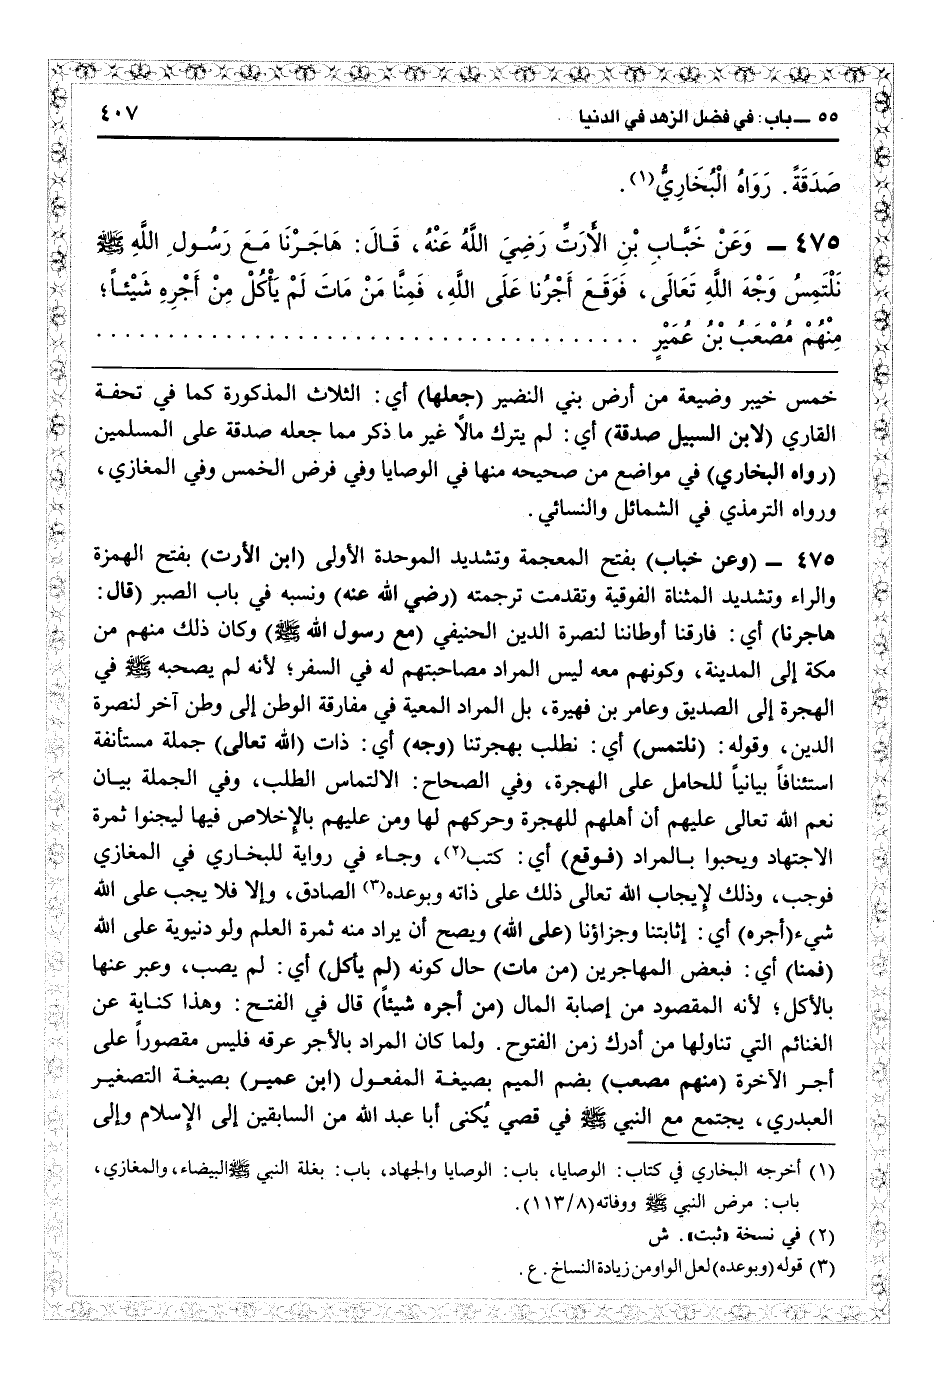 ٥٥ ــ باب: في فضل الزهد في الدنيا ٤٠٧
صَدَقَةً. رَوَاهُ الْبُخَارِيُّ(١).
٤٧٥ ــ وَعَنْ خَبَّابِ بْنِ الأَرَتِّ رَضِيَ اللَّهُ عَنْهُ، قَالَ: هَاجَرْنَا مَعَ رَسُولِ اللَّهِ ﷺ
نَلْتَمِسُ وَجْهَ اللَّهِ تَعَالَى، فَوَقَعَ أَجْرُنا عَلَى اللَّهِ، فَمِنَّا مَنْ مَاتَ لَمْ يَأْكُلْ مِنْ أَجْرِهِ شَيْئاً؛
مِنْهُمْ مُصْعَبُ بْنُ عُمَيْرٍ . . . . . . . . . . . . . . . . . . . . . . . . . . . . . . . . . . . . . .
خمس خيبر وضيعة من أرض بني النضير (جعلها) أي: الثلاث المذكورة كما في تحفة
القاري (لابن السبيل صدقة) أي: لم يترك مالاً غير ما ذكر مما جعله صدقة على المسلمين
(رواه البخاري) في مواضع من صحيحه منها في الوصايا وفي فرض الخمس وفي المغازي،
ورواه الترمذي في الشمائل والنسائي.
٤٧٥ ــ (وعن خباب) بفتح المعجمة وتشديد الموحدة الأولى (ابن الأرت) بفتح الهمزة
والراء وتشديد المثناة الفوقية وتقدمت ترجمته (رضي الله عنه) ونسبه في باب الصبر (قال:
هاجرنا) أي: فارقنا أوطاننا لنصرة الدين الحنيفي (مع رسول الله ﷺ) وكان ذلك منهم من
مكة إلى المدينة، وكونهم معه ليس المراد مصاحبتهم له في السفر؛ لأنه لم يصحبه ﷺ في
الهجرة إلى الصديق وعامر بن فهيرة، بل المراد المعية في مفارقة الوطن إلى وطن آخر لنصرة
الدين، وقوله: (نلتمس) أي: نطلب بهجرتنا (وجه) أي: ذات (الله تعالى) جملة مستأنفة
استئنافاً بيانياً للحامل على الهجرة، وفي الصحاح: الالتماس الطلب، وفي الجملة بيان
نعم الله تعالى عليهم أن أهلهم للهجرة وحركهم لها ومن عليهم بالإخلاص فيها ليجنوا ثمرة
الاجتهاد ويحبوا بالمراد (فوقع) أي: كتب(٢)، وجاء في رواية للبخاري في المغازي
فوجب، وذلك لإيجاب الله تعالى ذلك على ذاته وبوعده(٣) الصادق، وإلا فلا يجب على الله
شيء(أجره) أي: إثابتنا وجزاؤنا (على الله) ويصح أن يراد منه ثمرة العلم ولو دنيوية على الله
(فمنا) أي: فبعض المهاجرين (من مات) حال كونه (لم يأكل) أي: لم يصب، وعبر عنها
بالأكل؛ لأنه المقصود من إصابة المال (من أجره شيئاً) قال في الفتح: وهذا كناية عن
الغنائم التي تناولها من أدرك زمن الفتوح. ولما كان المراد بالأجر عرقه فليس مقصوراً على
أجر الآخرة (منهم مصعب) بضم الميم بصيغة المفعول (ابن عمير) بصيغة التصغير
العبدري، يجتمع مع النبي ﷺ في قصي يُكنى أبا عبد الله من السابقين إلى الإسلام وإلى
(١) أخرجه البخاري في كتاب: الوصايا، باب: الوصايا والجهاد، باب: بغلة النبي ﷺ البيضاء، والمغازي،
باب: مرض النبي ﷺ ووفاته (٨/١١٣).
(٢) في نسخة «ثبت». ش
(٣) قوله (وبوعده) لعل الواو من زيادة النساخ. ع.